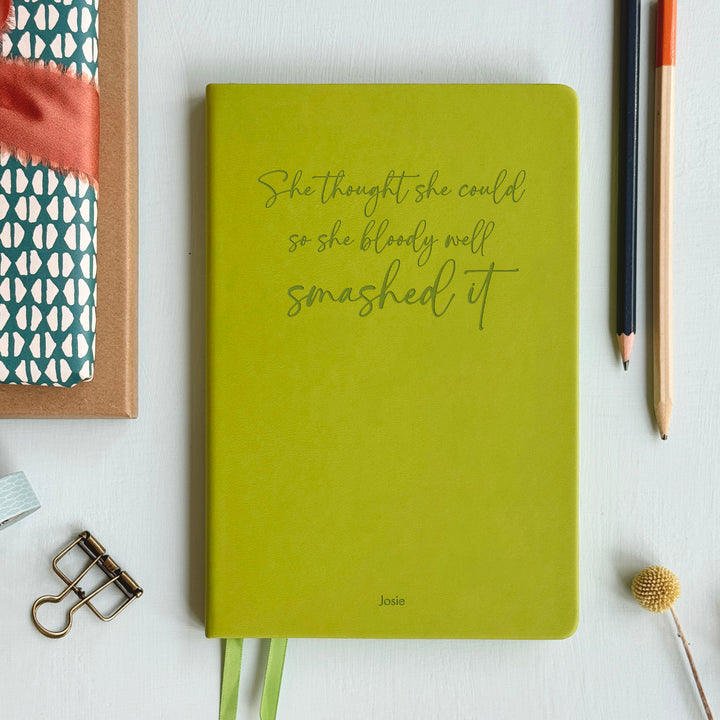 She thought she could
so she bloody well
smashed it
Josie